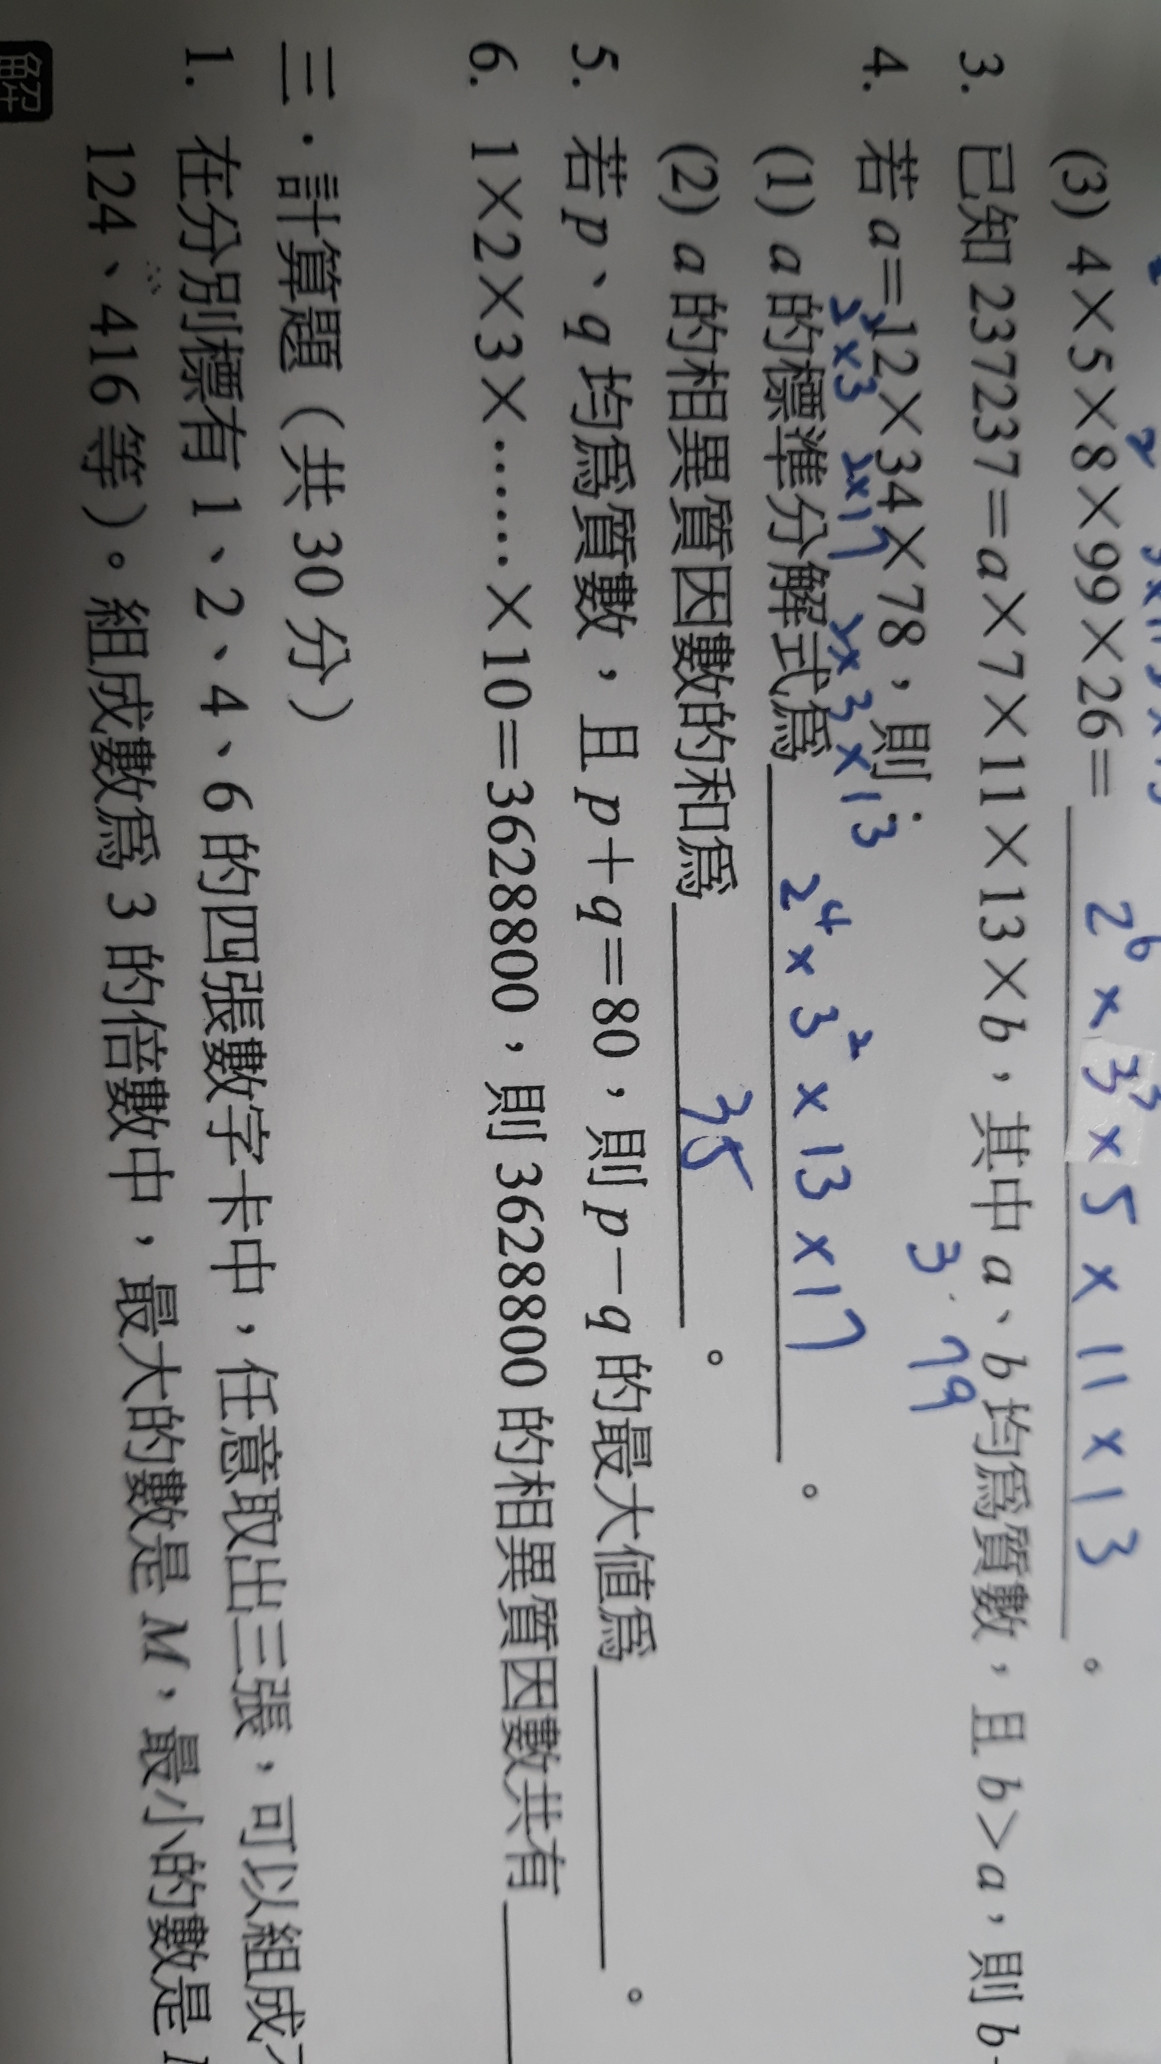 (3) 4×5×8×99×26= 2⁶×3²×5×11×13 。
3. 已知 237237=a×7×11×13×b，其中 a、b 均為質數，且 b>a，則 b
3. 79
4. 若 a=12×34×78，則：
2²×3 2×17 2×3×13
(1) a 的標準分解式為 2⁴×3²×13×17 。
(2) a 的相異質因數的和為 35 。
5. 若 p、q 均為質數，且 p+q=80，則 p−q 的最大值為 。
6. 1×2×3×……×10=3628800，則 3628800 的相異質因數共有
三．計算題（共 30 分）
1. 在分別標有 1、2、4、6 的四張數字卡中，任意取出三張，可以組成
124、416 等）。組成數為 3 的倍數中，最大的數是 M，最小的數是
解